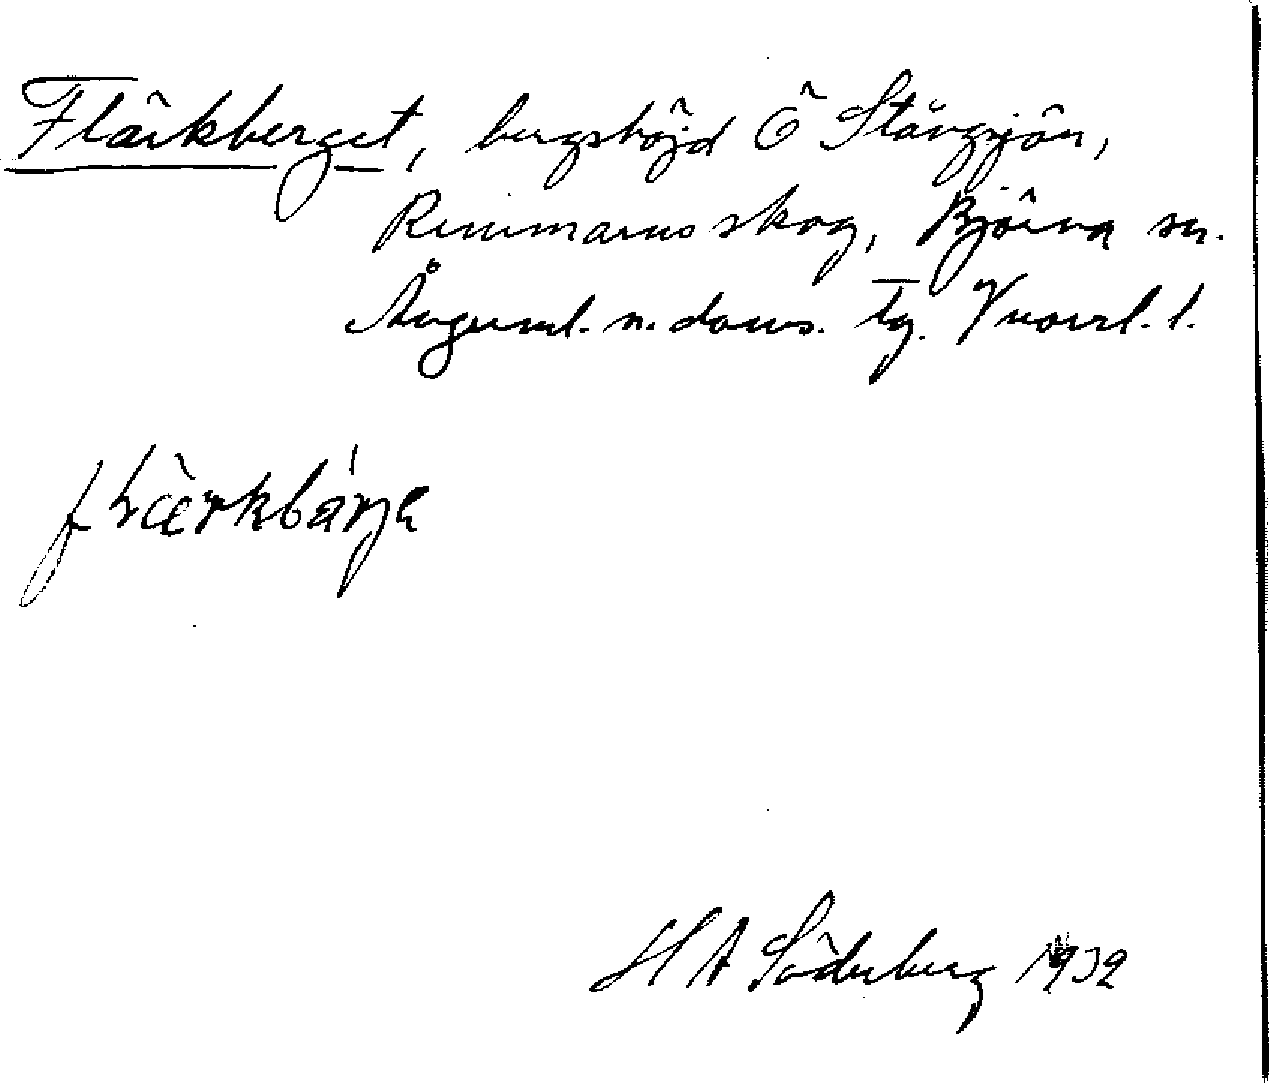 Flärkberget, bergshöjd Ö Stängsjön,
Remmarns skog, Björna sn.
Ångerml. n. doms. tg. Vnorrl. l.
fLærkbárje
H A Söderberg 1932